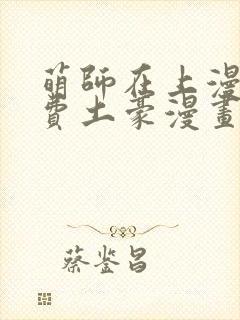 萌師在上漫
費土豪漫畫
蔡鉴昌